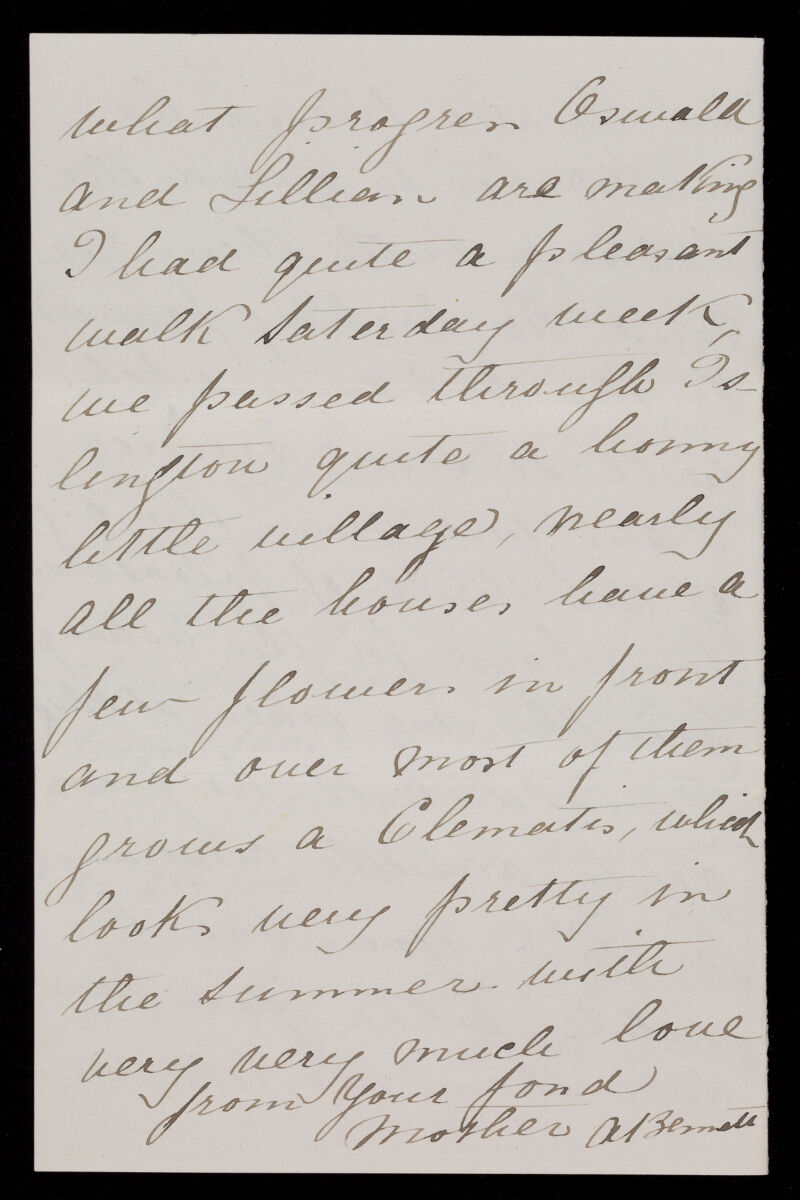 what progress Oswald
and Lillian are making
I had quite a pleasant
walk Saterday week,
we passed through Is-
lington quite a bonny
little village, nearly
all the houses have a
few flowers in front
and over most of them
grows a Clematis, which
looks very pretty in
the summer. with
very very much love
from your fond
Mother A Bennett